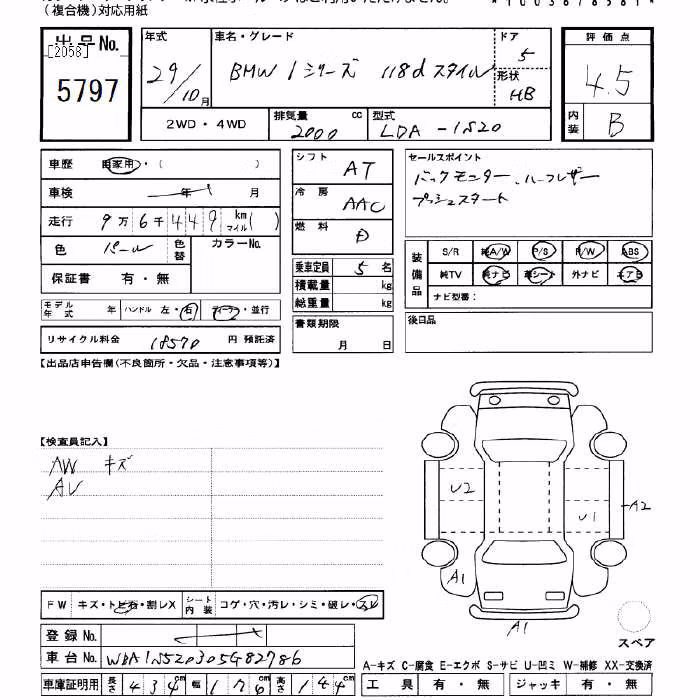 (複合機)対応用紙
出品No. [2058] 5797
年式 29/10月
車名・グレード BMW 1シリーズ 118d スタイル
ドア 5
形状 HB
評価点 4.5
内装 B
2WD・4WD
排気量 2000 cc
型式 LDA-1S20
車歴 自家用・( )
車検 年 月
走行 9万6千449 km マイル( )
色 パール 色替 カラーNo.
保証書 有・無
モデル年式 年 ハンドル 左・右 ディーラー・並行
リサイクル料金 18570 円 預託済
シフト AT
冷房 AAC
燃料 D
乗車定員 5 名
積載量 kg
総重量 kg
書類期限 月 日
セールスポイント
バックモニター、ハーフレザー
プッシュスタート
装備品 S/R 純A/W P/S P/W ABS
純TV 純ナビ 革シート 外ナビ エアB
ナビ型番:
後日品
【出品店申告欄(不良箇所・欠品・注意事項等)】
【検査員記入】
AW キズ
U2
U1
A2
A1
A1
スペア
FW キズ・トビ石・割レX
シート内装 コゲ・穴・汚レ・シミ・破レ・スレ
登録No.
車台No. WBA1S520305G82786
A-キズ C-腐食 E-エクボ S-サビ U-凹ミ W-補修 XX-交換済
車庫証明用 長さ 434cm 幅 176cm 高さ 144cm
工具 有・無 ジャッキ 有・無